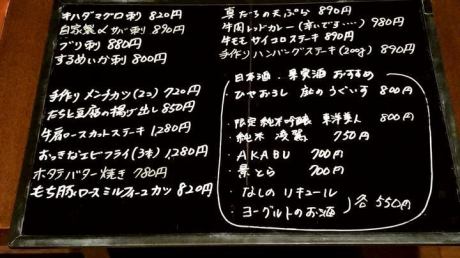 キハダマグロ刺 820円
自家製〆サバ刺 890円
ブリ刺 880円
するめいか刺 800円
手作りメンチカツ(2コ) 720円
たらと豆腐の揚げ出し 850円
牛肩ロースカットステーキ 1,280円
おっきなエビフライ(3本) 1,280円
ホタテバター焼き 780円
もち豚ロースミルフィーユカツ 820円
真だらの天ぷら 890円
牛肉レッドカレー(辛いです...) 980円
牛モモサイコロステーキ 890円
手作りハンバーグステーキ(200g) 890円
日本酒・果実酒 おすすめ
ひやおろし 庭のうぐいす 800円
・限定純米吟醸 東洋美人 800円
・純米 凌駕 750円
・AKABU 700円
・景とら 700円
・なしのリキュール
・ヨーグルトのお酒
各550円